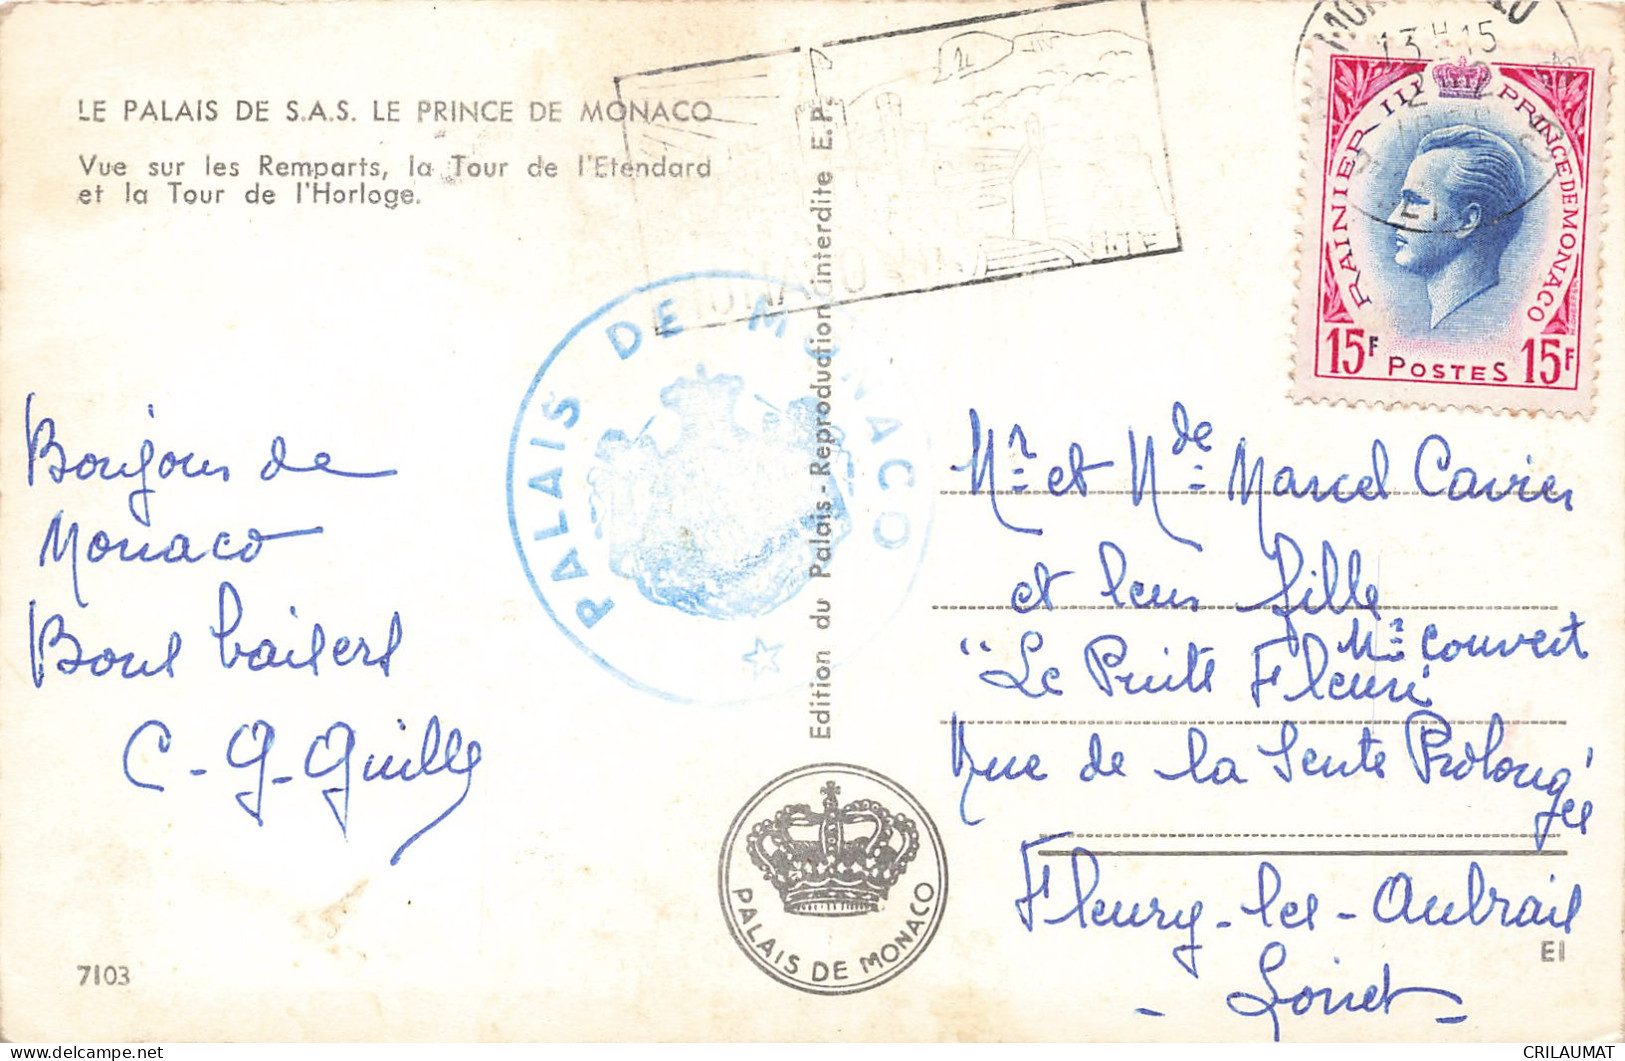 LE PALAIS DE S.A.S. LE PRINCE DE MONACO
Vue sur les Remparts, la Tour de l'Etendard
et la Tour de l'Horloge.
Bonjour de
Monaco
Bons baisers
C-G-Guille
7103
PALAIS DE MONACO
Edition du Palais - Reproduction interdite E.P.
PALAIS DE MONACO
13H15
RAINIER III PRINCE DE MONACO
15F POSTES 15F
Mr et Mde Marcel Cavier
et leur fille
Mr Couvert
"Le Puits Fleuri
Rue de la Sente Prolongée
Fleury-les-Aubrais
EI
- Loiret -
CRILAUMAT